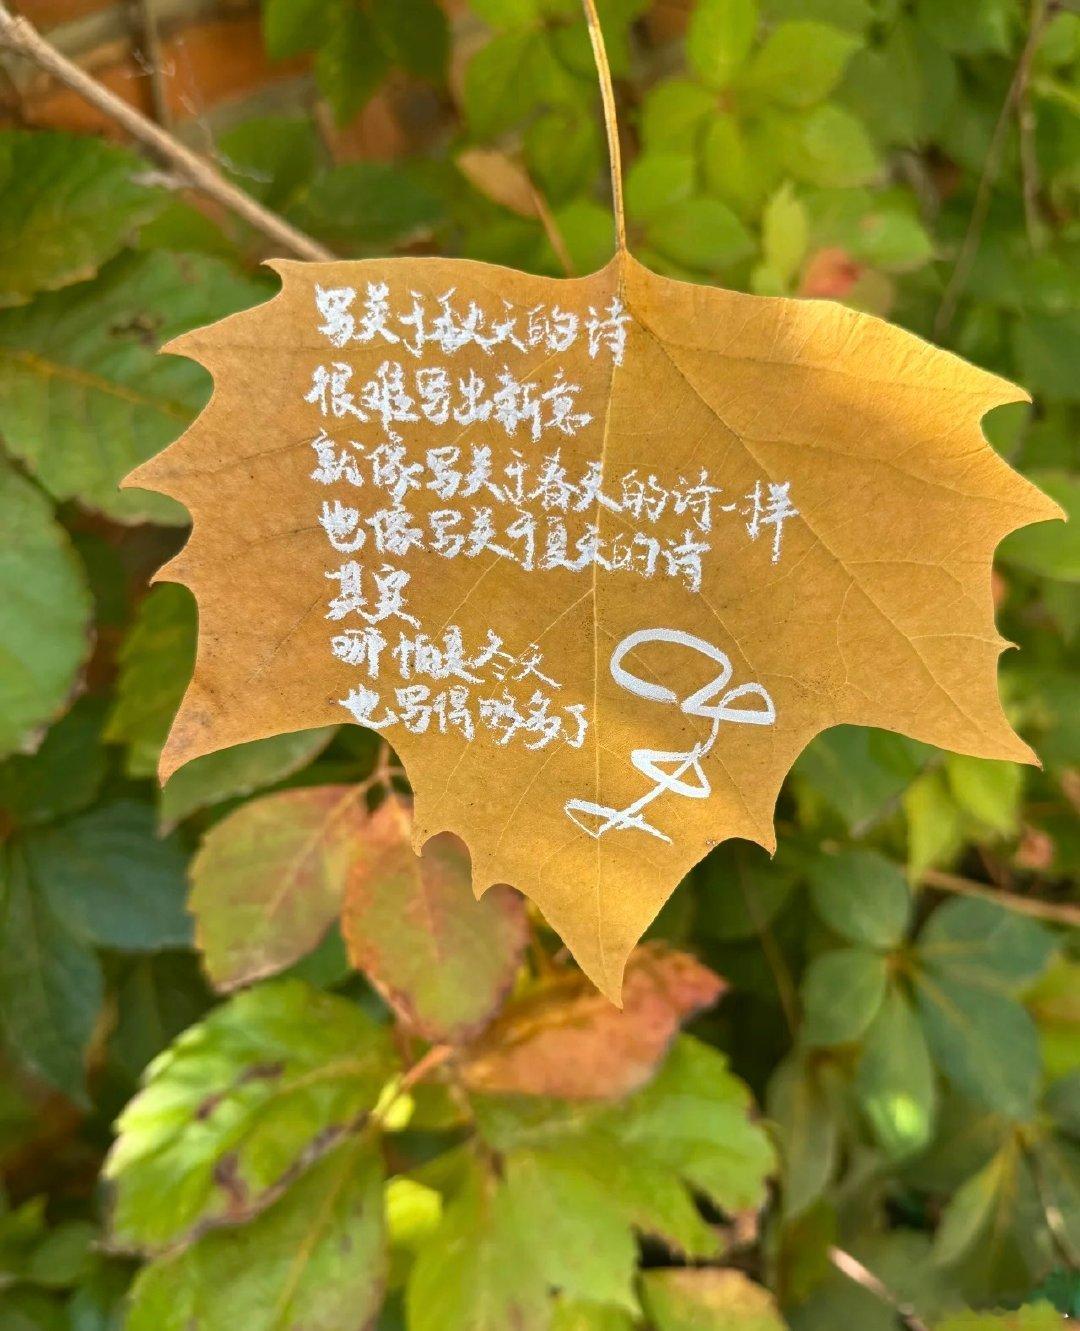 写关于秋天的诗
很难写出新意
就像写关于春天的诗一样
也像写关于夏天的诗
其实
哪怕是冬天
也写得够多了